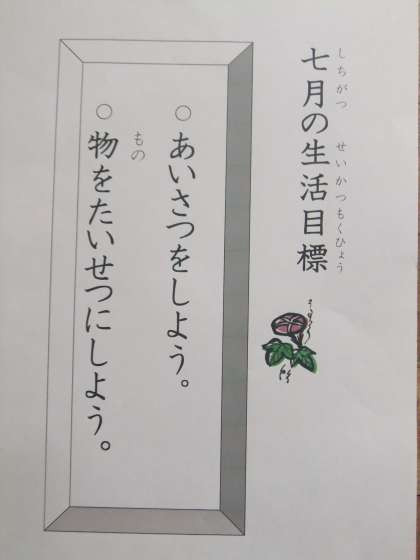 七月の生活目標
しちがつ せいかつもくひょう
○あいさつをしよう。
○物をたいせつにしよう。
もの